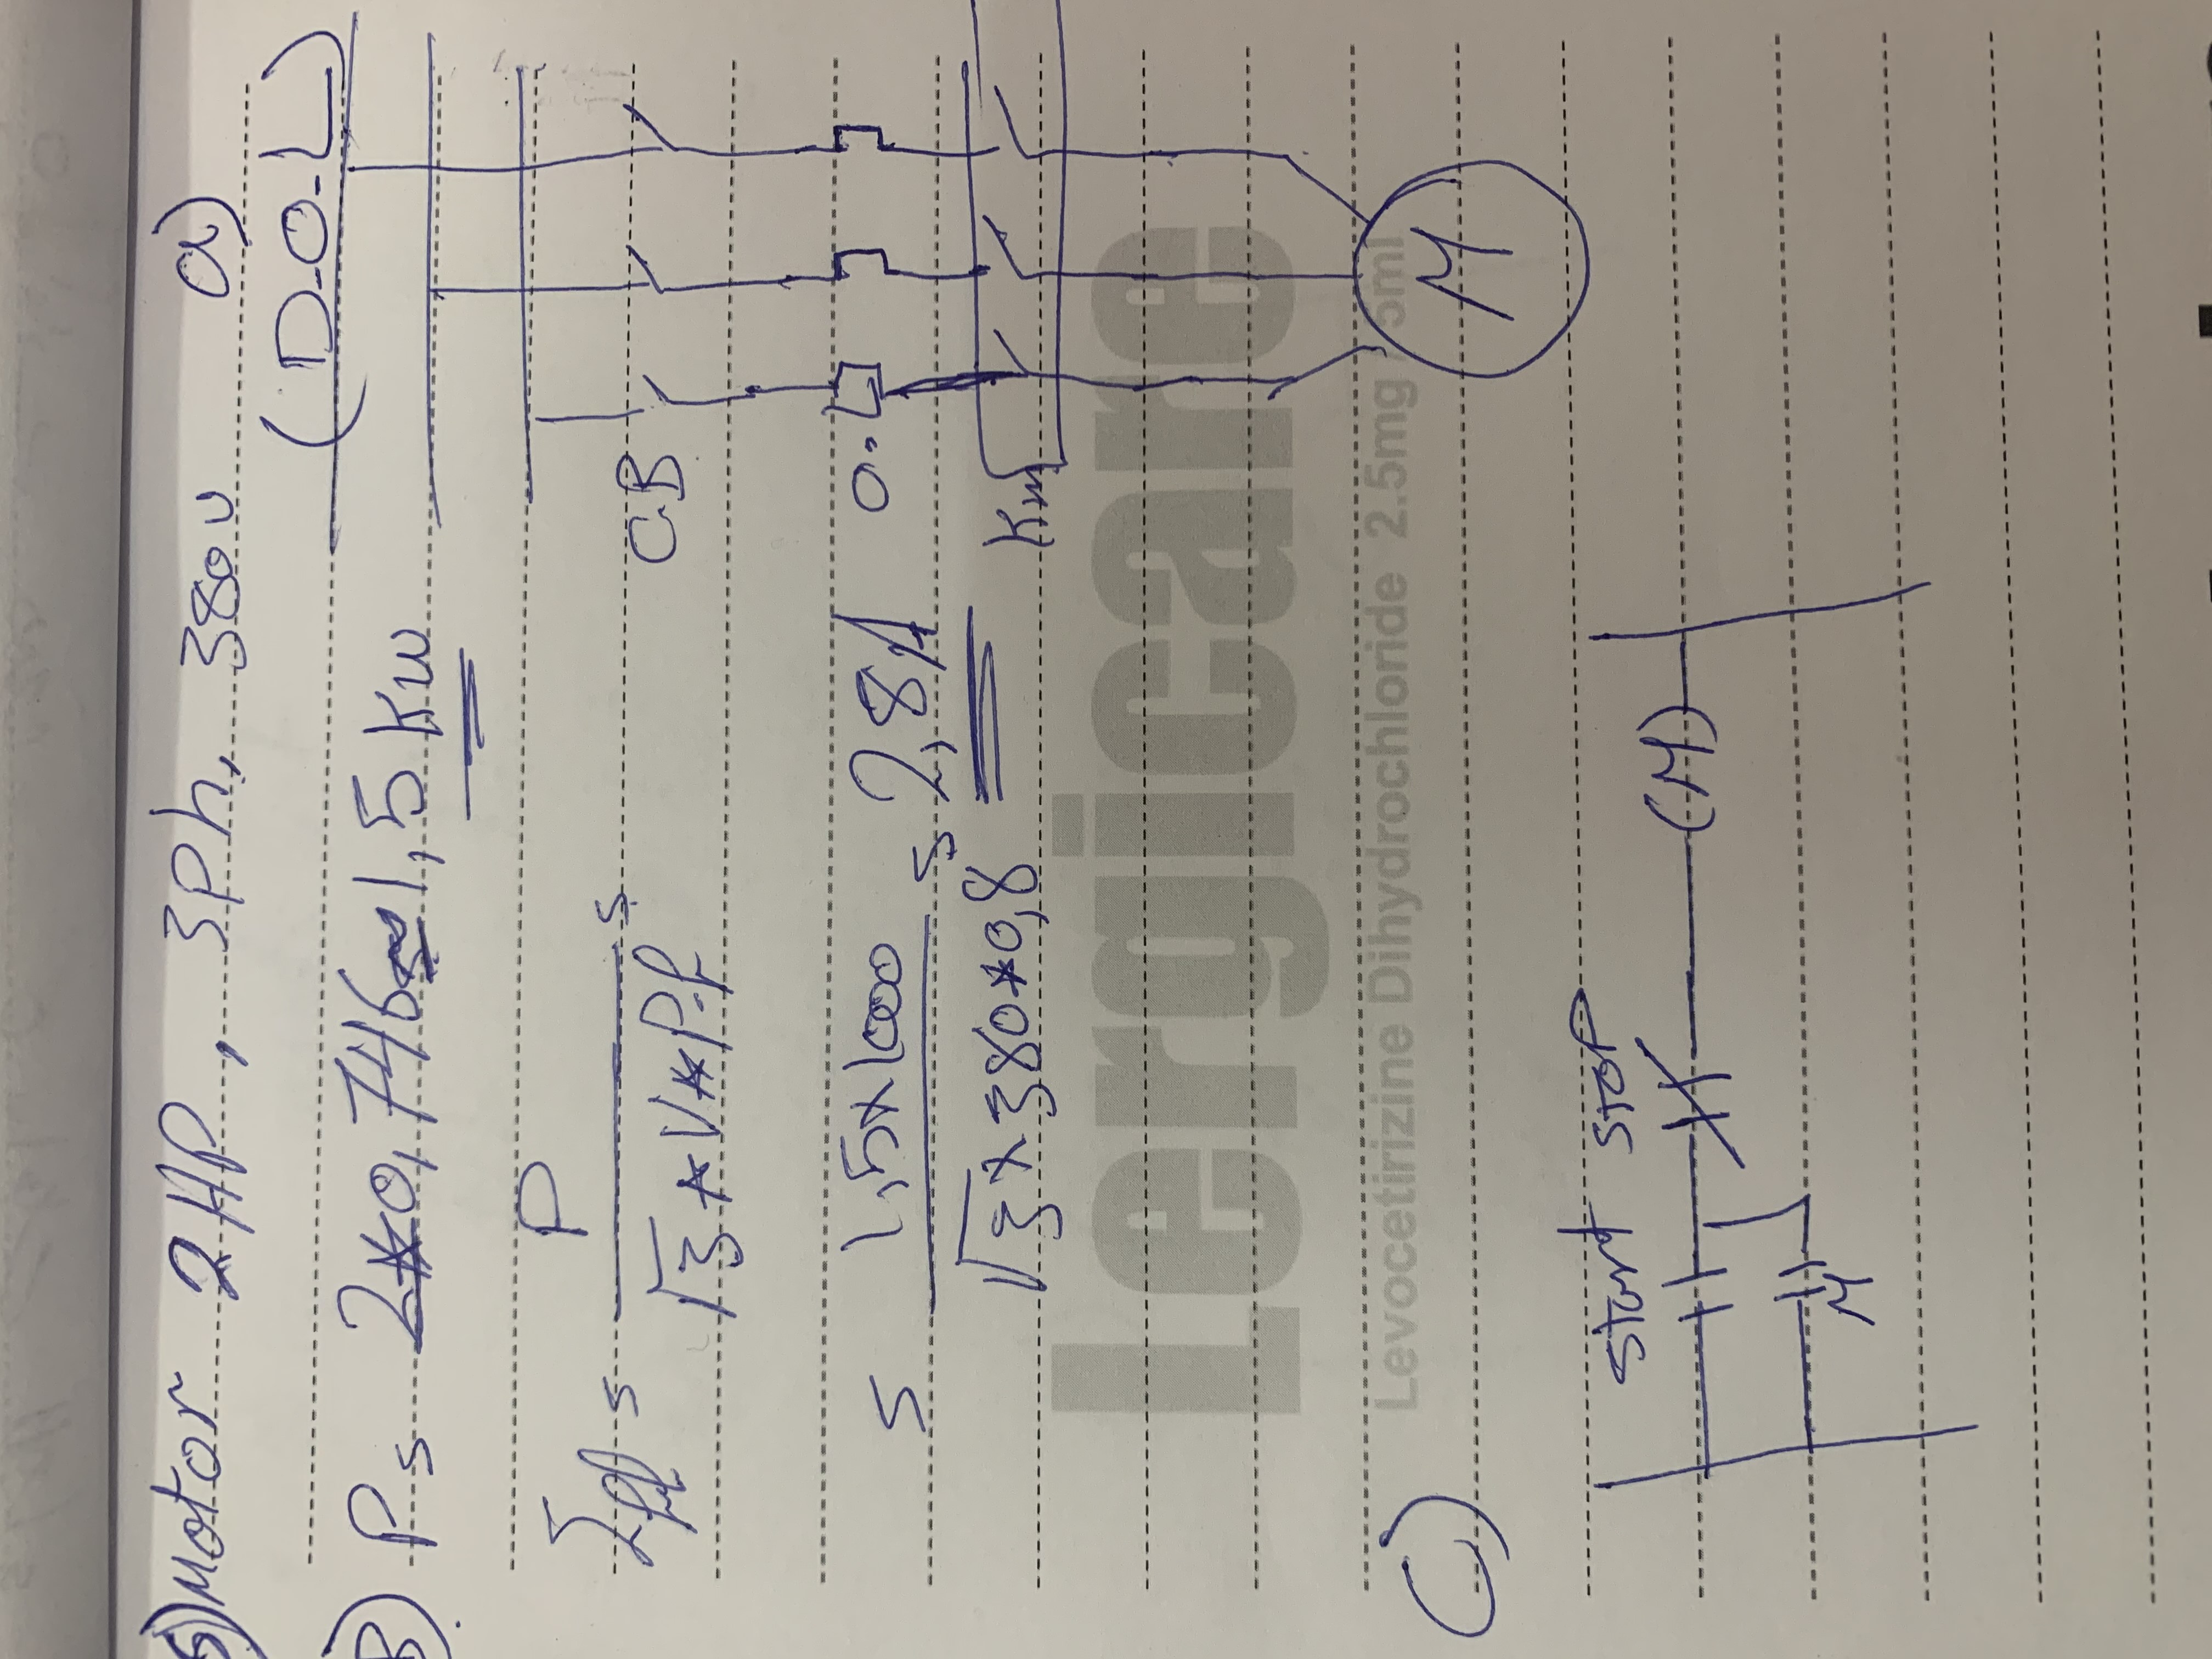 5) Motor 2 HP, 3Ph, 380 V
a)
(D.O.L)
B) P = 2*0,746 ≈ 1,5 Kw
P
I_fl = =
√3 * V * P.f
C.B
1,5*1000
= = 2,8A
√3 * 380 * 0,8
O.L
Km
Lergicare
Levocetirizine Dihydrochloride 2.5mg / 5ml
M
C)
Start Stop
(M)
M